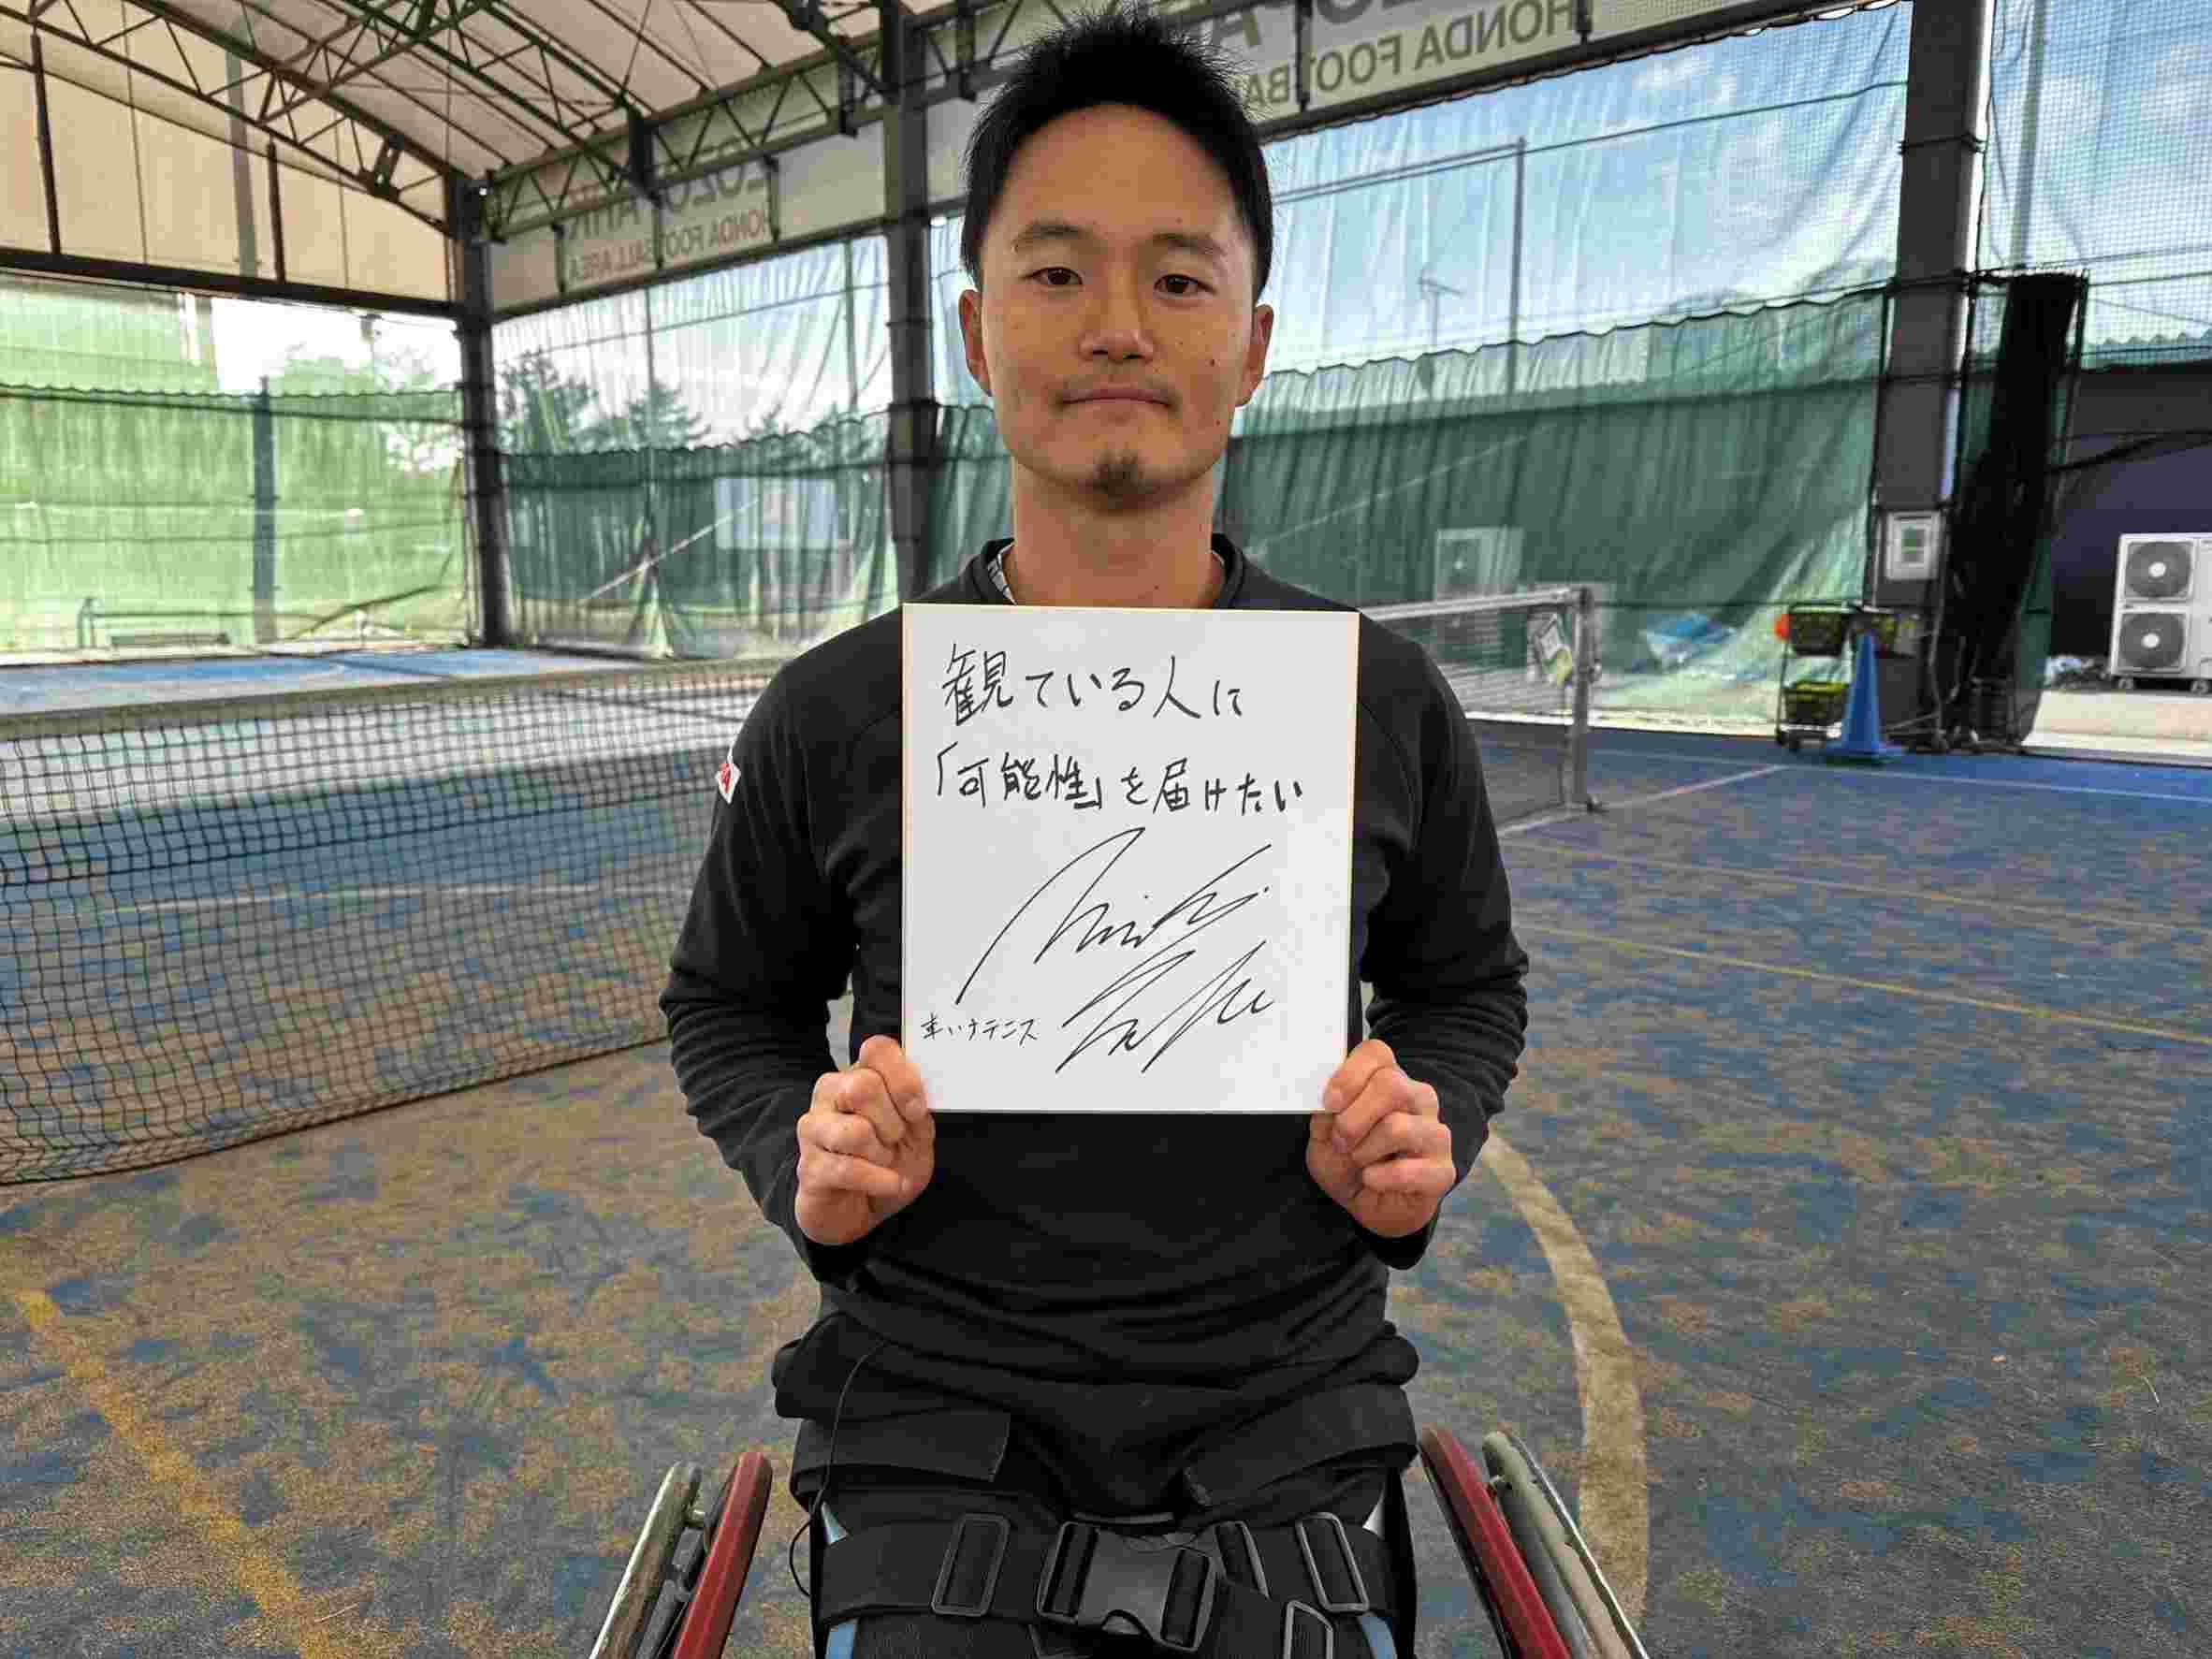 HONDA FOOTBA
HONDA FOOTBALL AREA
観ている人に
「可能性」を届けたい
車いすテニス